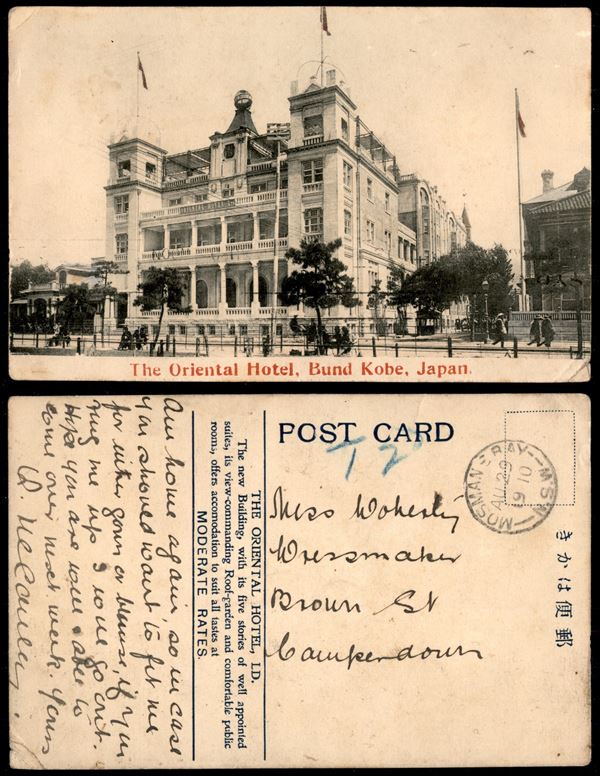 The Oriental Hotel, Bund Kobe, Japan.
POST CARD
T 2
MOSMAN'S BAY N.S.W
AU 29
1910
きかは便郵
THE ORIENTAL HOTEL, LD.
The new Building, with its five stories of well appointed
suites, its view-commanding Roof-garden and comfortable public
rooms, offers accomodation to suit all tastes at
MODERATE RATES.
Am home again, so in case
you should want to fit me
for either gown or blouse, if you
ring me up I will go out.
Hope you are well & able to
come over next week. Yours
Miss
Dressmaker
Brown St
Camperdown